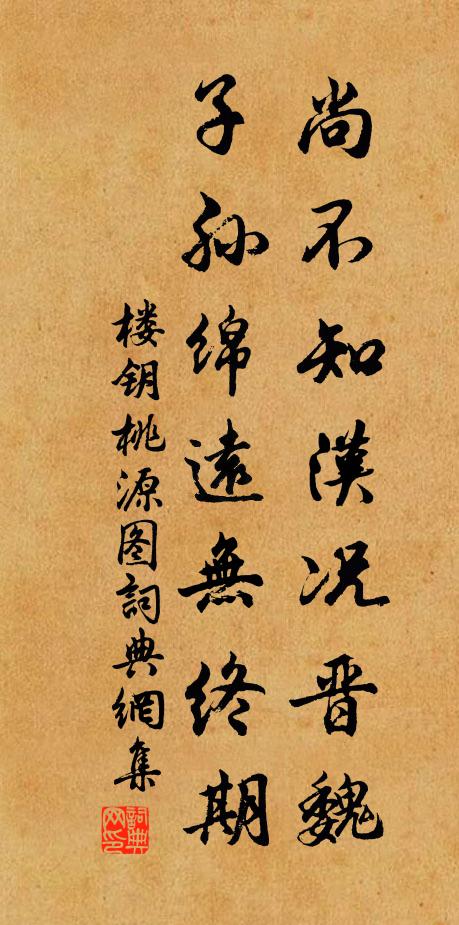 尚不知漢况晋魏
子孫綿遠無終期
楼钥桃源图詞典網集
詞典网印